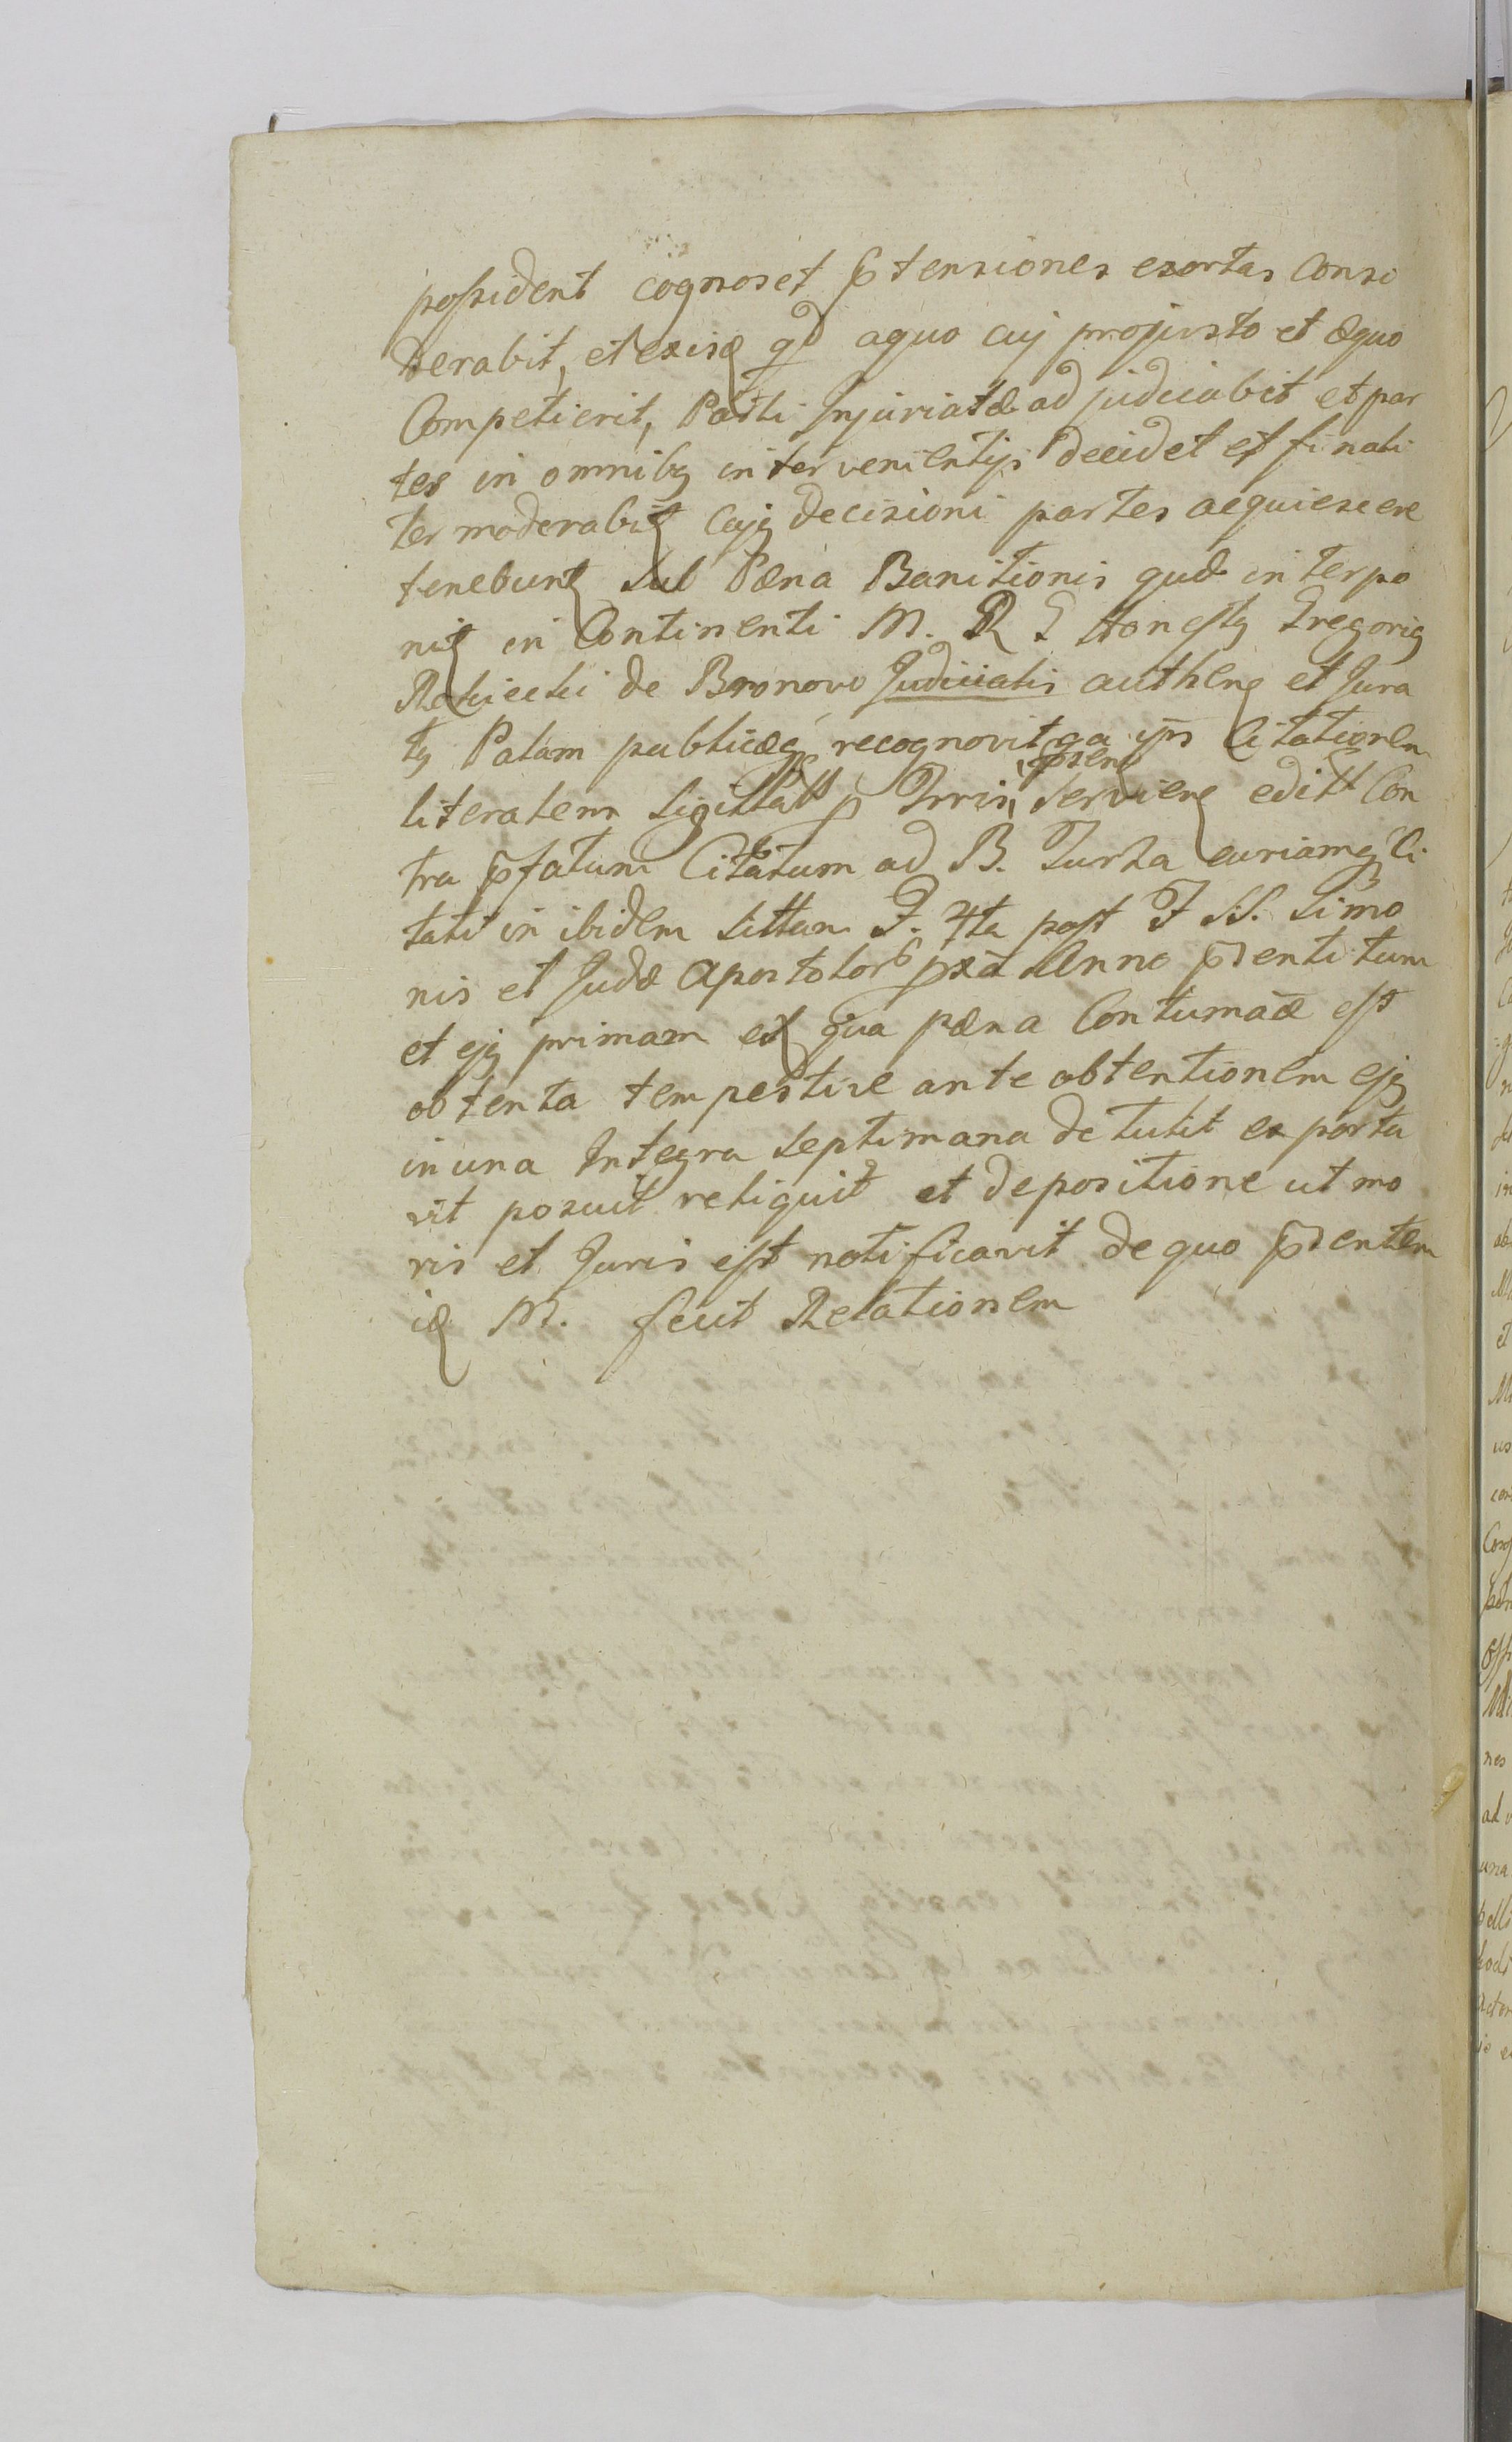 possident cognoscet ptensiones exortas Consi
derabit, et exisq qd aquo cuj pro justo et æquo
Competierit, Parti Injuriatæ adjudicabit et par
tes in omnibq intervenientijs decidet et finali
ter moderabit Cujq decisioni partes acquiescere
tenebunt sub Pæna Banitionis quæ interpo
nit in Continenti M. R T Honestq Gregoriq
de Bronovo Judicialis authen et Jura
tq Palam publiceq recognovit qa ips Citationem
literalem Sigillatt p Trris, psen Servien editt Con
tra pfatum Citatum ad B. Turka curiamq Ci
tati in ibidem Sittam F. 4ta post F SS. Simo
nis et Judæ Apostolor pxa Anno pdenti tum
et ejq primam ex qua pæna Contumaciæ est
obtenta tempestive ante obtentionem ejq
in una Integra Septimana detulit exporta
vit posuit reliquit et depositione ut mo
ris et Juris est notificavit de quo pdentem
iq M. fecit Relationem